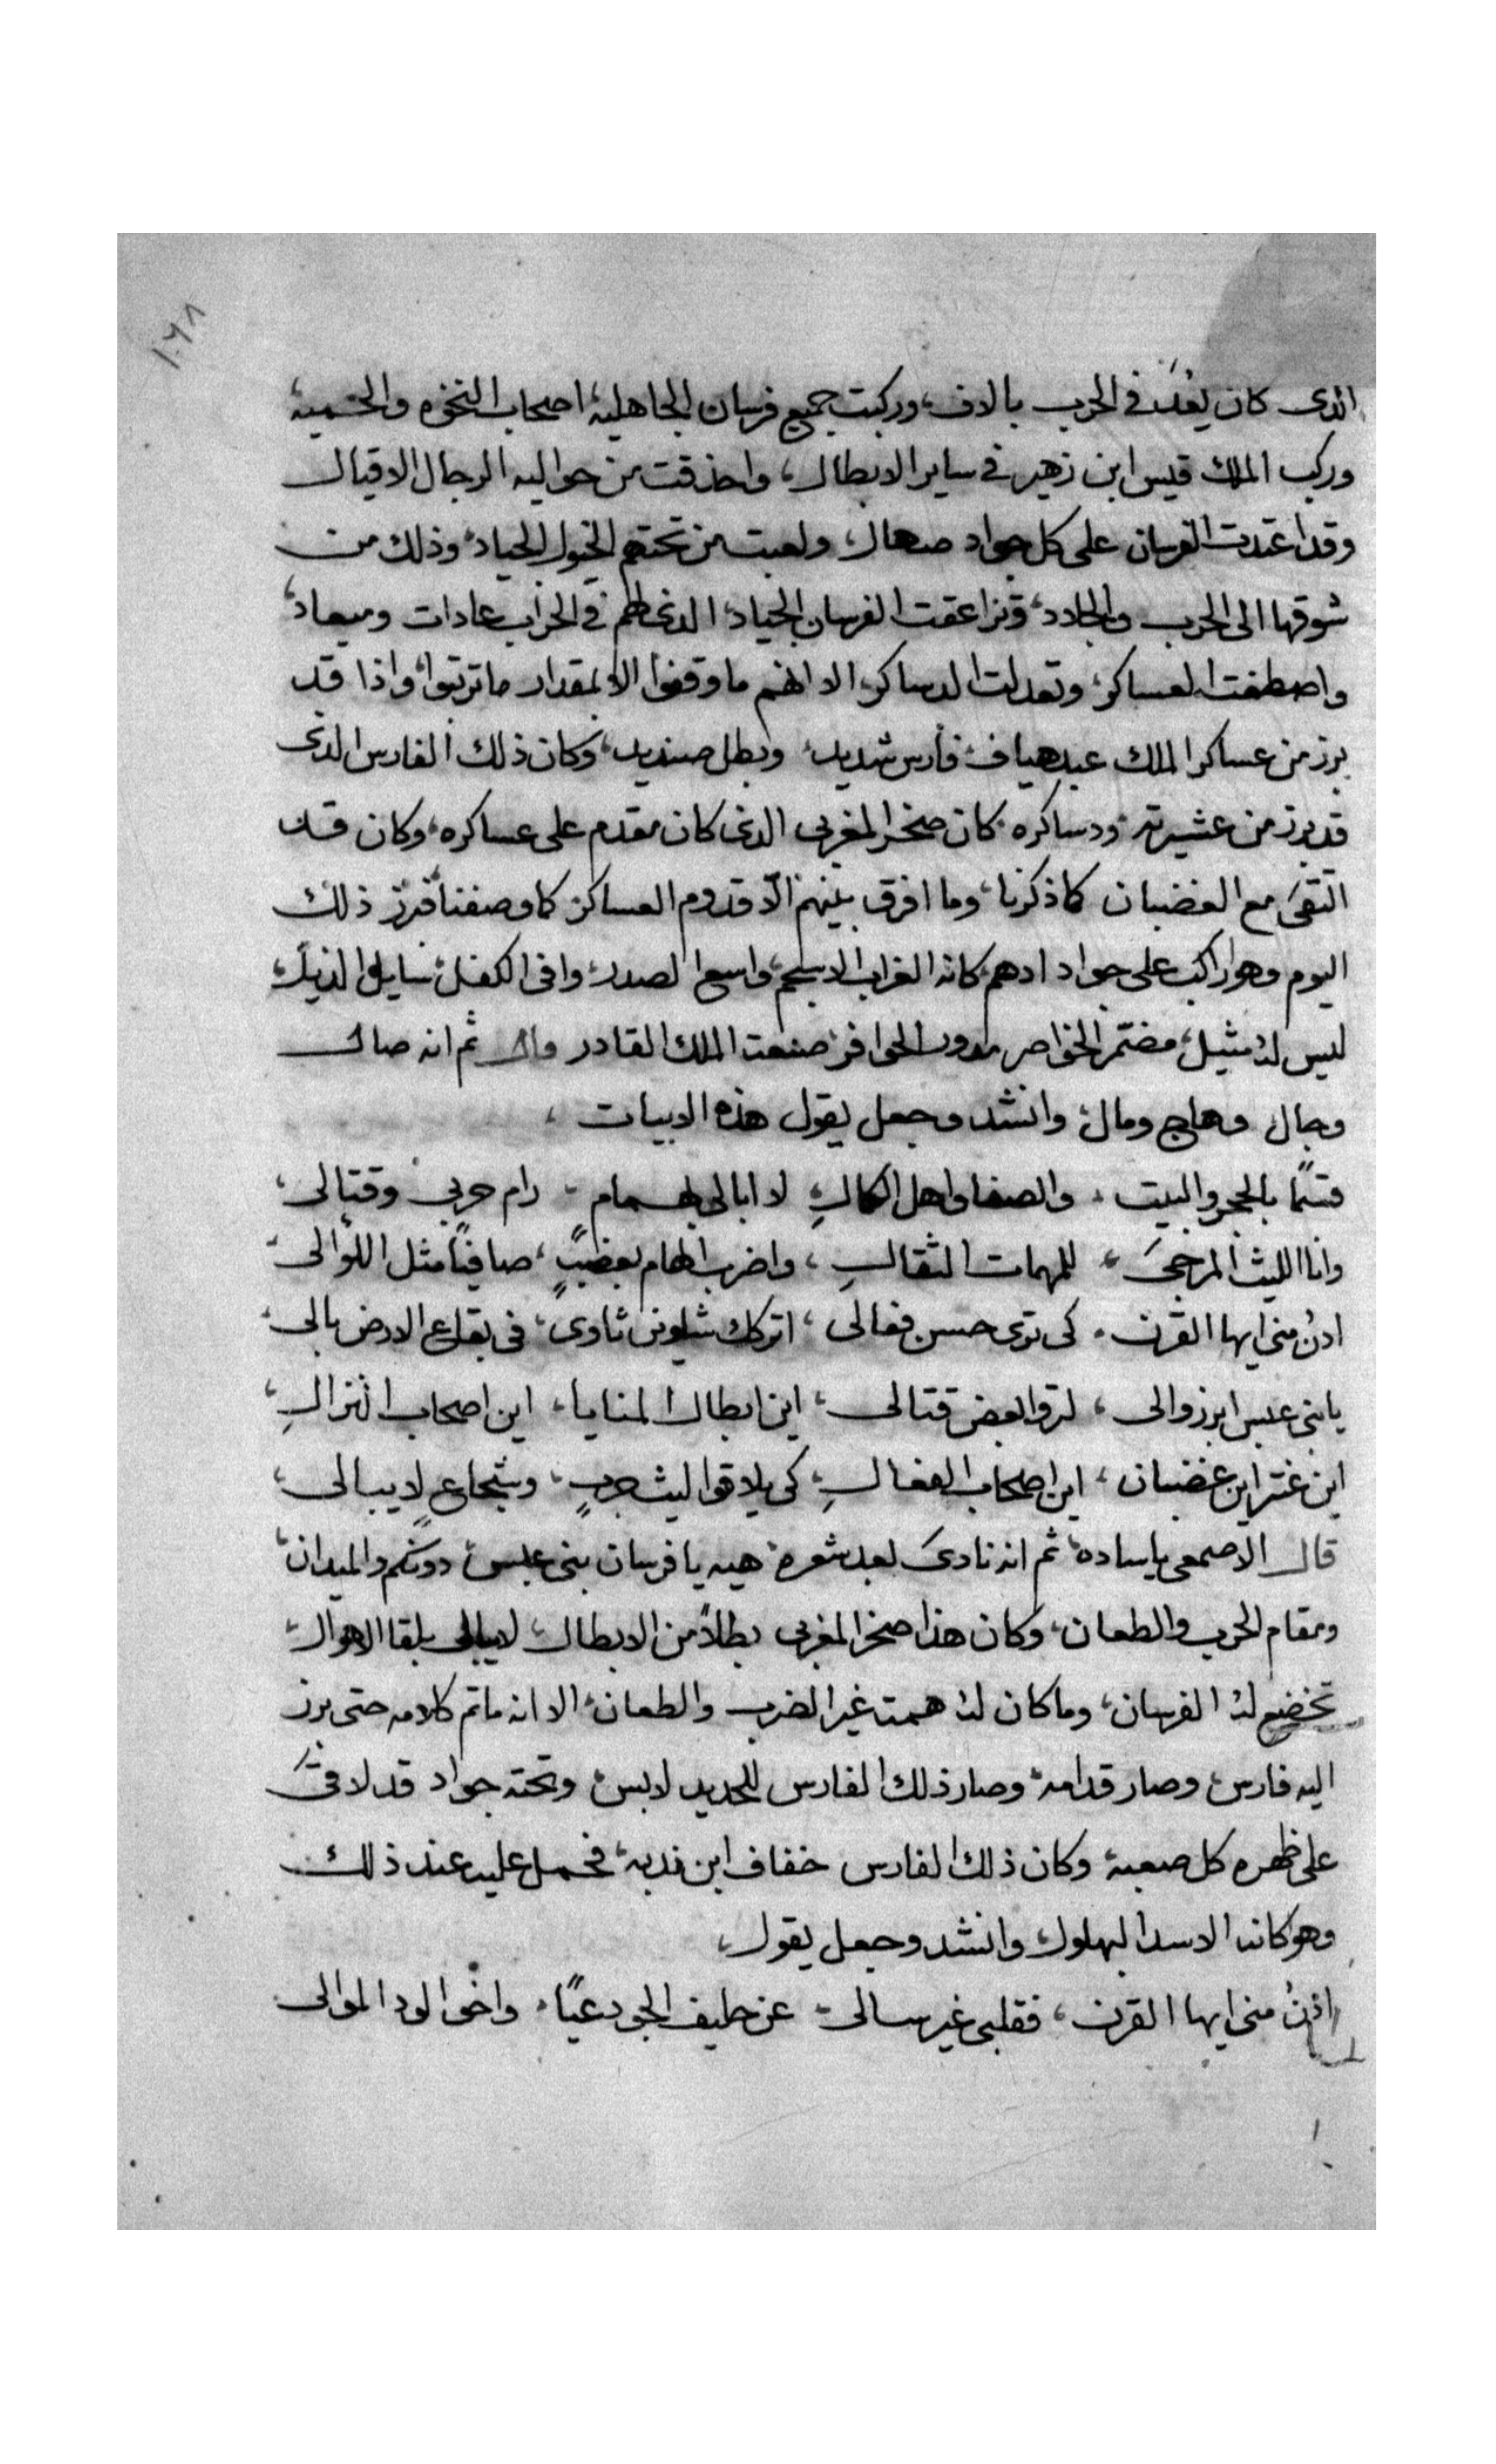 ١٠٦٨
الذى كان يُعَدّ فى الحرب بالاف، وركبت جميع فرسان الجاهلية، اصحاب النخوه والحمية،
وركب الملك قيس ابن زهير فى ساير الابطال، واحدقت من حواليه الرجال الاقيال
وقد اعتدت الفرسان على كل جواد صهال، ولعبت من تحتهم الخيول الجياد، وذلك من
شوقها الى الحرب والجلاد، وتزاعقت الفرسان الجياد، الذى لهم فى الحراب عادات وميعاد،
واصطفت العساكر، وتعدلت الدساكر، الا انهم ما وقفوا الا بمقدار ما ترتبوا، واذا قد
برز من عساكر الملك عبد هياف، فارس شديد، وبطل صنديد، وكان ذلك الفارس الذى
قد برز من عشيرته، ودساكره، كان صخر المغربى الذى كان مقدم على عساكره، وكان قد
التقى مع الغضبان كما ذكرنا، وما افرق بينهم الّا قدوم العساكر، كما وصفنا، فبرز ذلك
اليوم وهو راكب على جواد ادهم، كانه الغراب الاسحم، واسع الصدر، وافى الكفل، سايل الذيل،
ليس له مثيل، مضمّر الخواصر، مدور الحوافر، صنعت الملك القادر قال ثم انه صال
وجال وهاج ومال، وانشد وجعل يقول هذه الابيات،
قسمًا بالحجر والبيت، والصفا واهل الكمالِ، لا ابالى بهمام، رام حربى وقتالى،
وانا الليث المرجى، للمهمات الثقالِ، واضرب الهام بعضبٍ، صافيًا مثل اللوالى،
ادنُ منى ايها القرن، كى ترى حسن فعالى، اتركك شلوٍ ثاوى، فى بقاع الارض بالى،
يا بنى عبس ابرزوالى، لتروا بعض قتالى، اين ابطال المنايا، اين اصحاب النزالِ،
اين عنتر اين غضبان، اين اصحاب الفعالِ، كى يلاقوا ليث حربٍ، وشجاعٍ لا يبالى،
قال الاصمعى يا ساده، ثم انه نادى بعد شعره، هيه يا فرسان بنى عبس، دونكم والميدان،
ومقام الحرب والطعان، وكان هذا صخر المغربى بطلاً من الابطال، لا يبالى بلقا الاهوال،
تخضع له الفرسان، وما كان له همت غير الضرب والطعان، الا انه ما تم كلامه حتى برز
اليه فارس، وصار قدامه، وصار ذلك الفارس للحديد لابس، وتحته جواد قد لاقى
على ظهره كل صعبة، وكان ذلك الفارس خفاف ابن ندبه، فحمل عليه عند ذلك
وهو كانه الاسد البهلول، وانشد وجعل يقول،
ادنُ منى ايها القرن، فقلبى غير سالى، عن حليف الجود عيًا، واخو الود الموالى